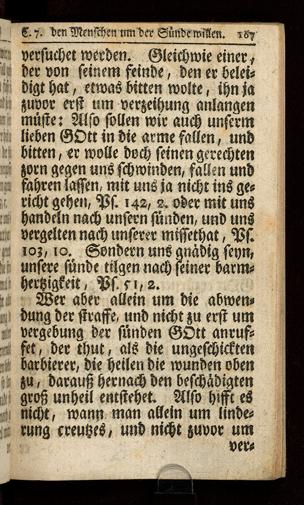 C. 7. den Menschen um der Sünde willen. 187
versuchet werden. Gleichwie einer,
der von seinem feinde, den er belei-
digt hat, etwas bitten wolte, ihn ja
zuvor erst um verzeihung anlangen
müste: Also sollen wir auch unserm
lieben GOtt in die arme fallen, und
bitten, er wolle doch seinen gerechten
zorn gegen uns schwinden, fallen und
fahren lassen, mit uns ja nicht ins ge-
richt gehen, Ps. 142, 2. oder mit uns
handeln nach unsern sünden, und uns
vergelten nach unserer missethat, Ps.
103, 10. Sondern uns gnädig seyn,
unsere sünde tilgen nach seiner barm-
hertzigkeit, Ps. 51, 2.
Wer aber allein um die abwen-
dung der straffe, und nicht zu erst um
vergebung der sünden GOtt anruf-
fet, der thut, als die ungeschickten
barbierer, die heilen die wunden oben
zu, darauß hernach den beschädigten
groß unheil entstehet. Also hifft es
nicht, wann man allein um linde-
rung creutzes, und nicht zuvor um
ver-